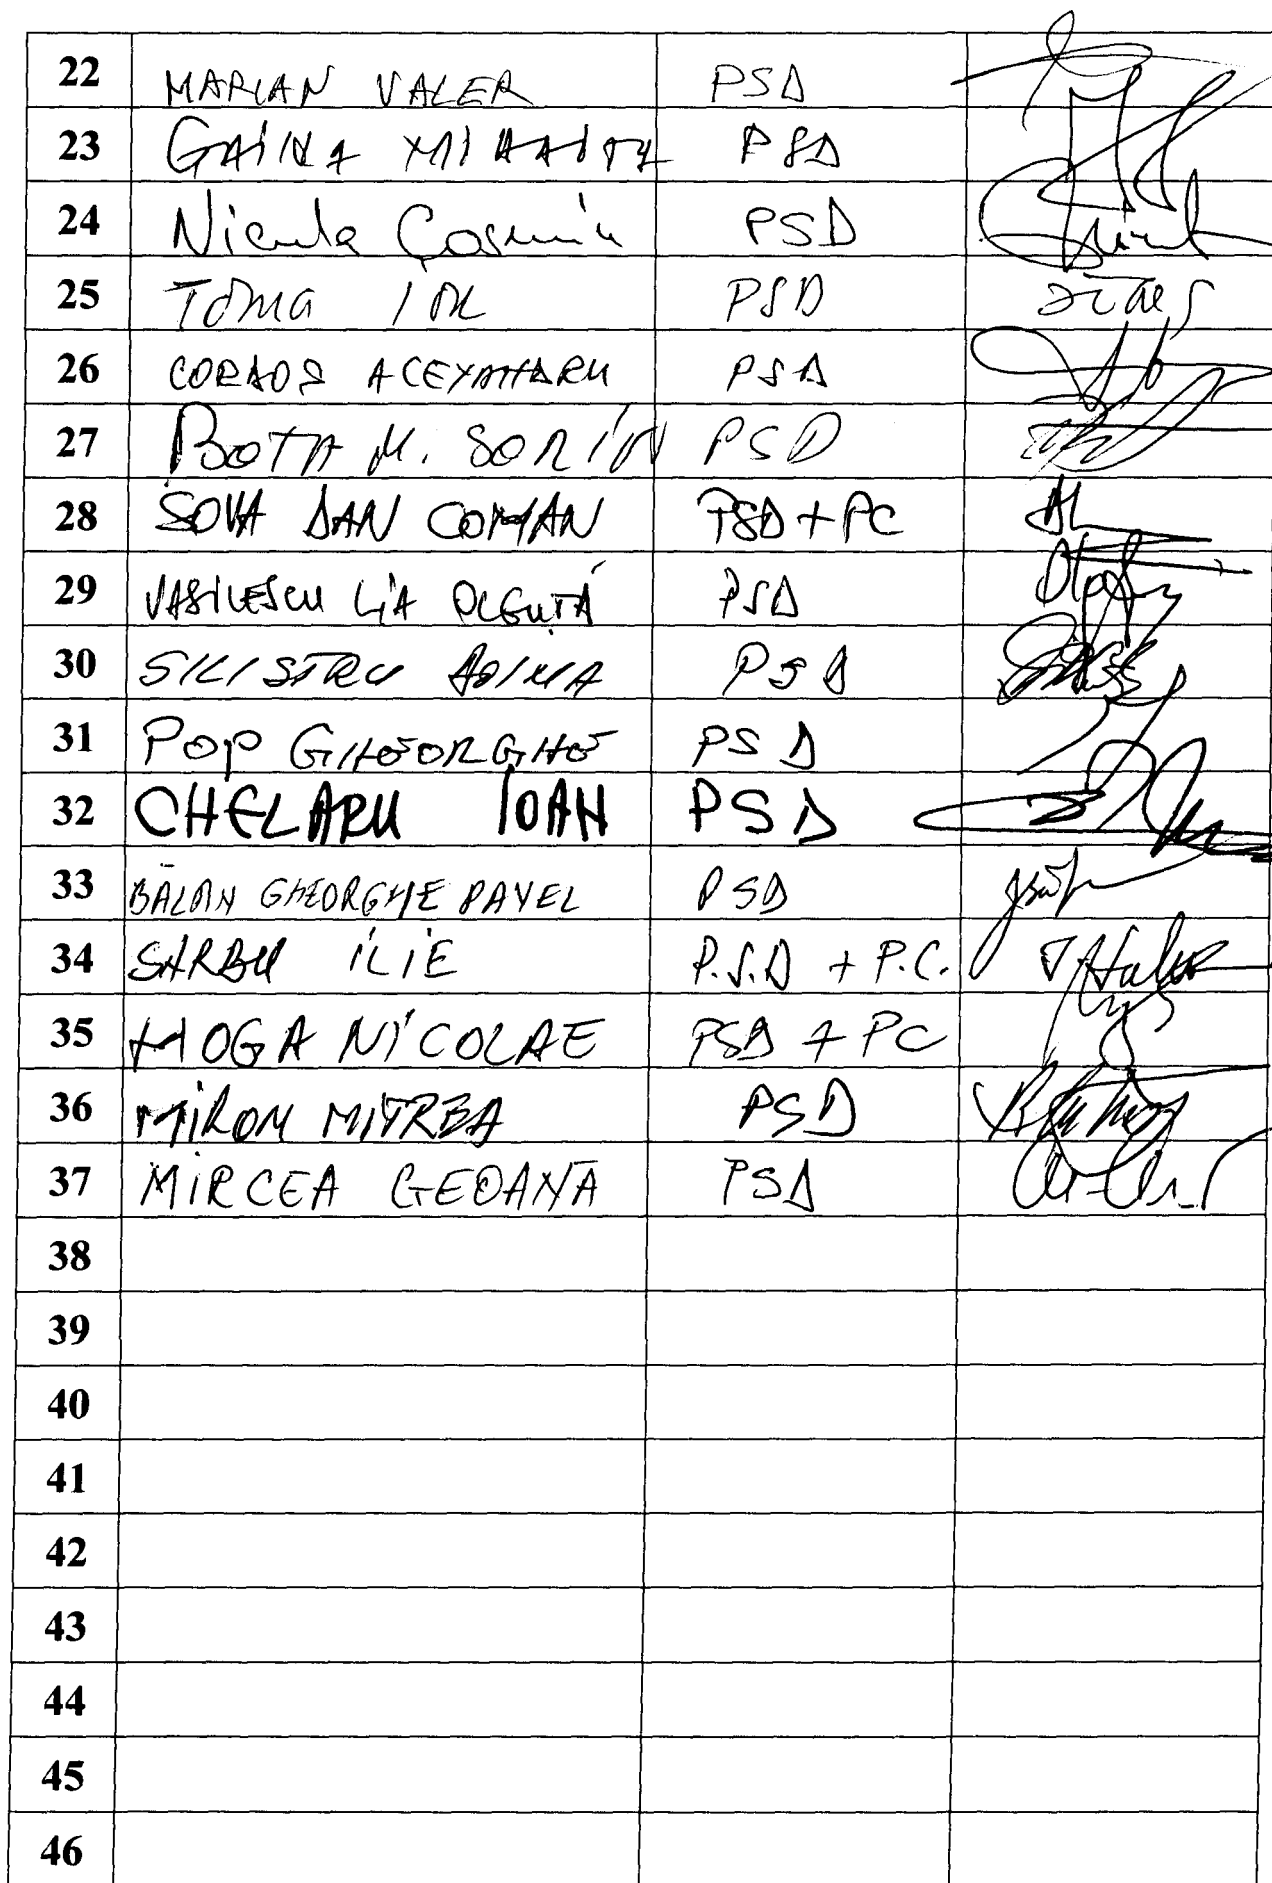 22 MARIAN VALER PSD
23 GAINA MIHAITA PSD
24 Nicula Cosmin PSD
25 TOMA ION PSD
26 CORDOS ALEXANDRU PSD
27 BOTA M. SORIN PSD
28 SOVA DAN COMAN PSD + PC
29 VASILESCU LIA OLGUȚA PSD
30 SILISTRU DOINA PSD
31 POP GHEORGHE PSD
32 CHELARU IOAN PSD
33 BĂLAN GHEORGHE PAVEL PSD
34 SARBU ILIE P.S.D + P.C.
35 MOGA NICOLAE PSD + PC
36 MIRON MITREA PSD
37 MIRCEA GEOANĂ PSD
38
39
40
41
42
43
44
45
46